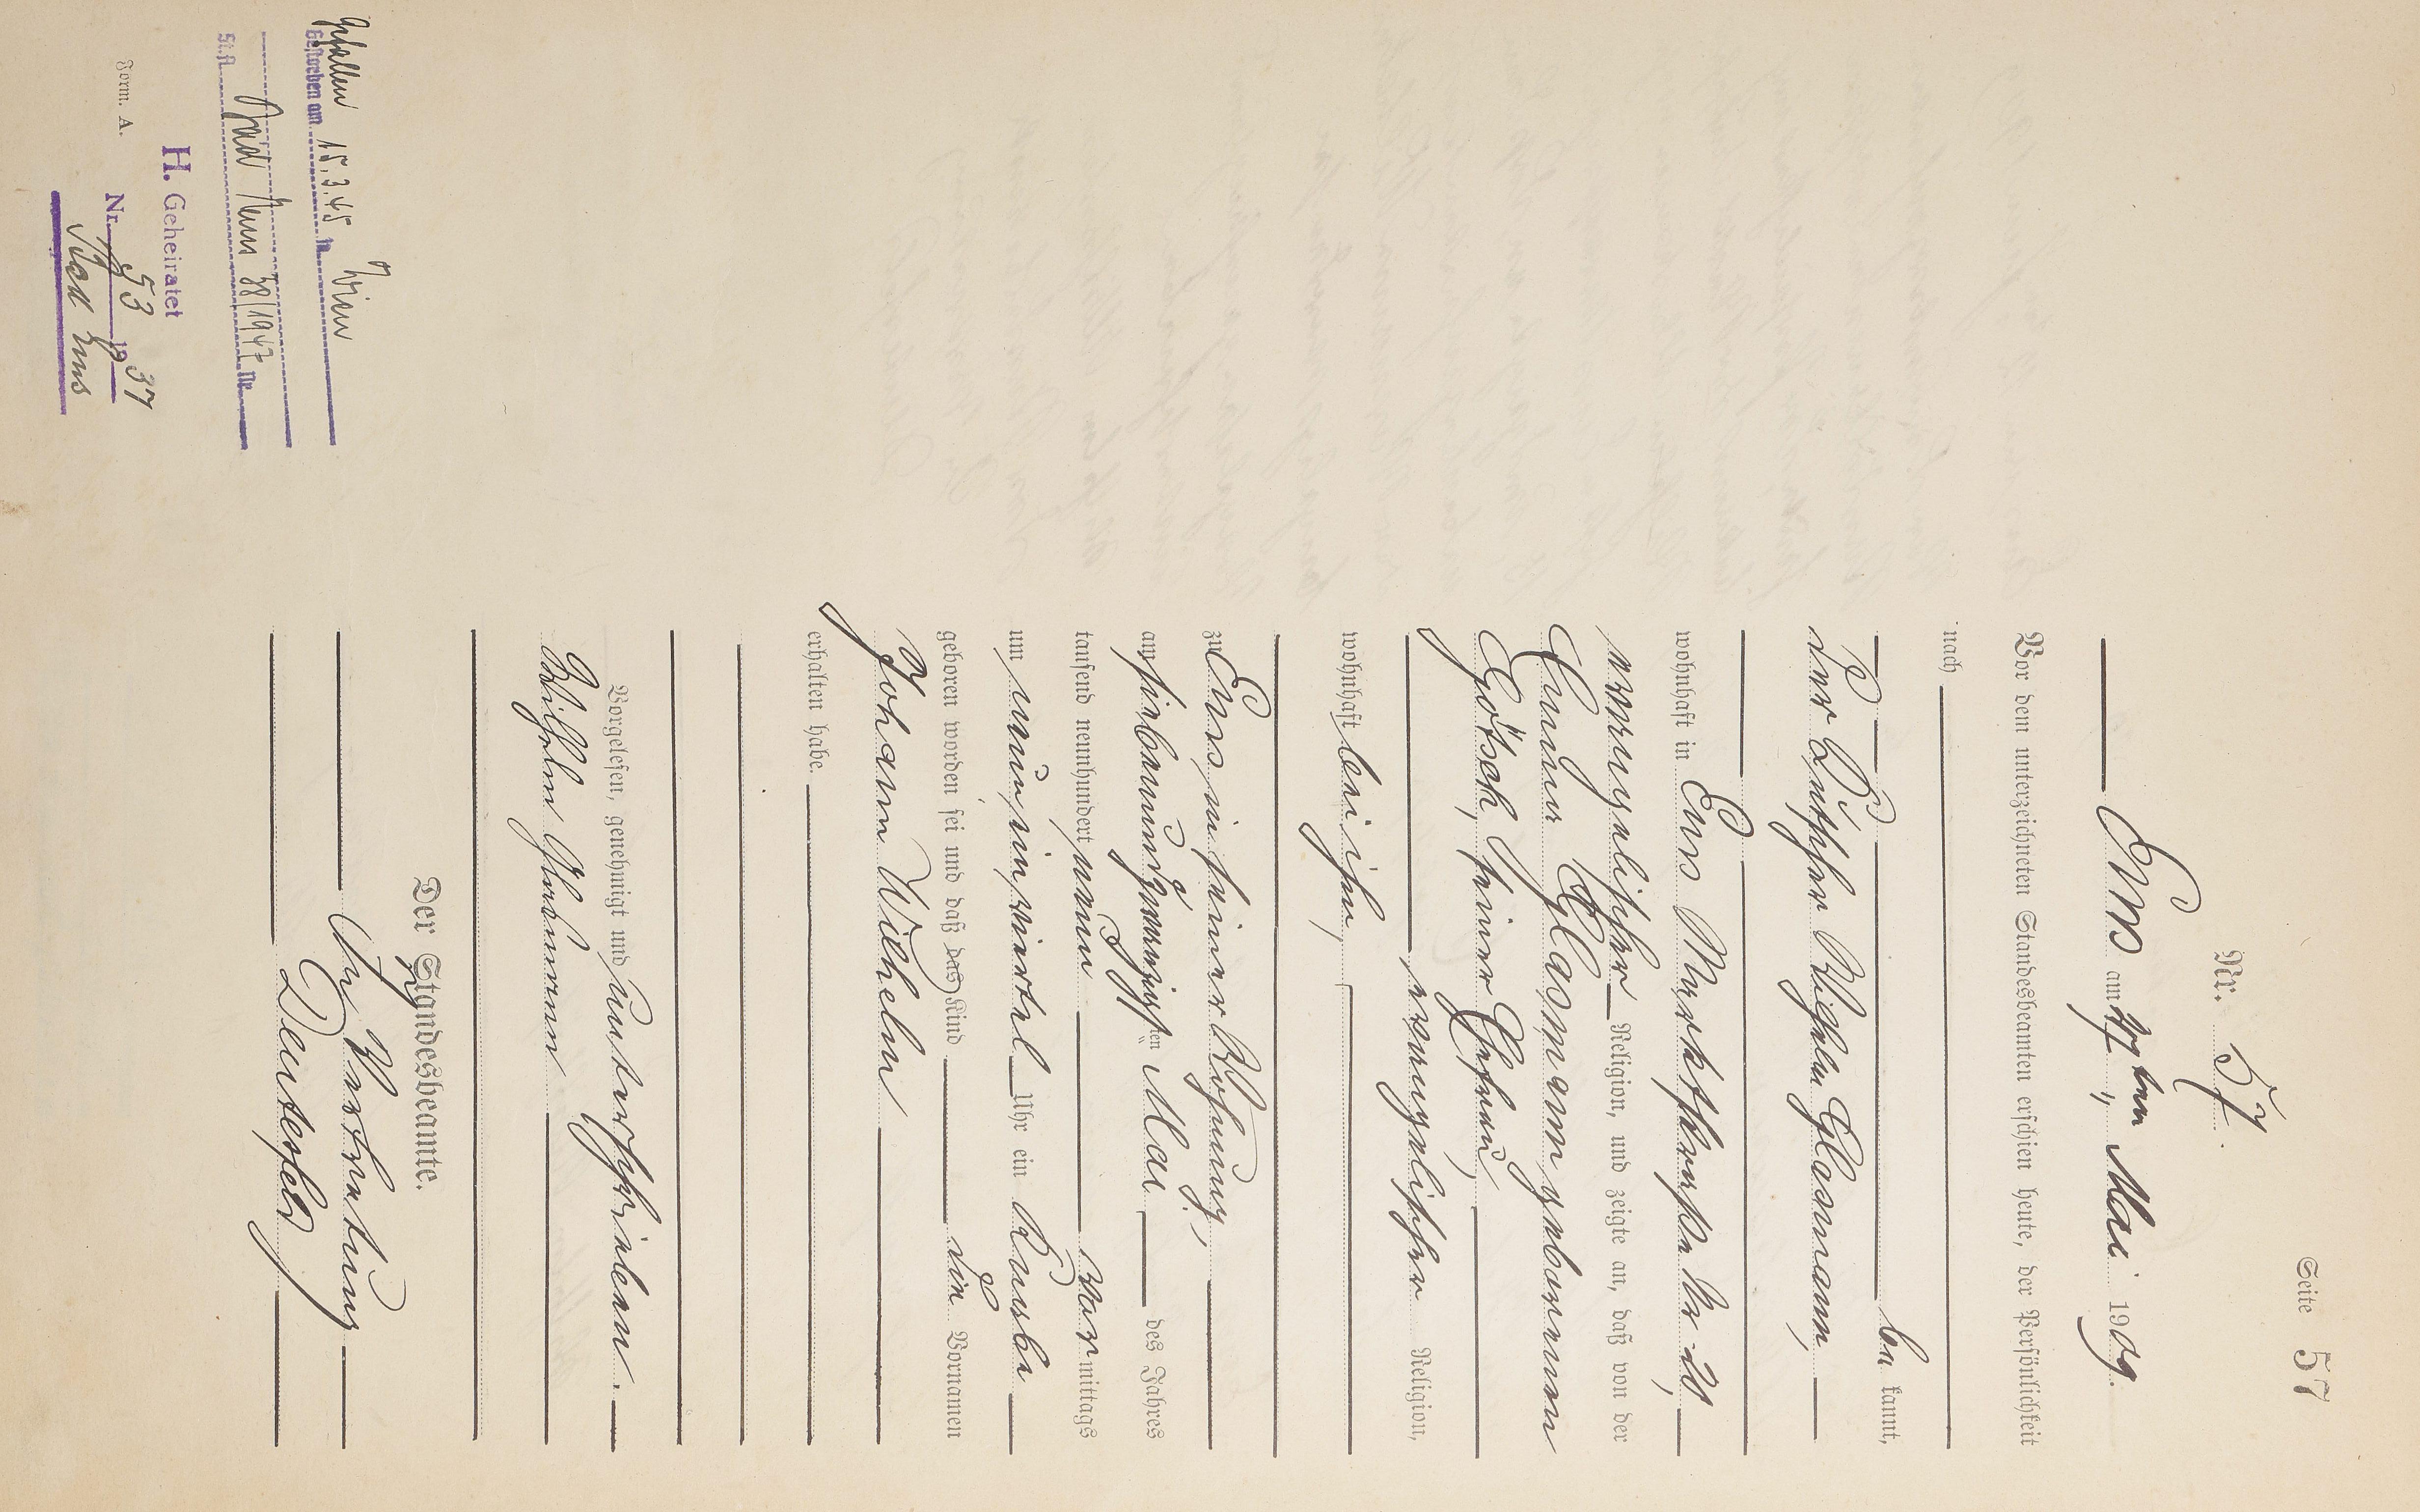 Seite 57
Nr. 57.
Ems am 29ten Mai 1909.
Vor dem unterzeichneten Standesbeamten erschien heute, der Persönlichkeit
nach
be kannt,
der Kutscher Wilhelm Glasmann,
wohnhaft in Ems Marktstraße Nr 28
evangelischer Religion, und zeigte an, daß von der
Emma Glasmann geborenen
Götsch, seiner Ehefrau,
evangelischer Religion,
wohnhaft bei ihm,
zu Ems in seiner Wohnung,
am siebenundzwanzigsten Mai des Jahres
tausend neunhundert neun Vormittags
um neun einviertel Uhr ein Knabe
geboren worden sei und daß das Kind die Vornamen
Johann Wilhelm
erhalten habe.
Vorgelesen, genehmigt und unterschrieben.
Wilhelm Glasmann
Der Standesbeamte.
In Vertretung
Deutesfeld
Gefallen
Gestorben am 15.3.45 in Wien
St.A. Bad Ems 38/1947 Nr.
H. Geheiratet
Nr. 53 1937
Bad Ems
Form. A.